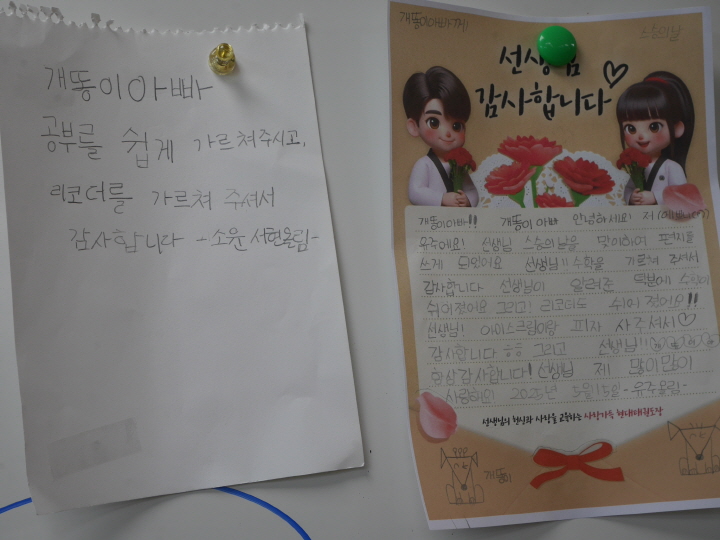 개똥이아빠
공부를 쉽게 가르쳐주시고,
리코더를 가르쳐 주셔서
감사합니다 -소윤 서현올림-
개똥이아빠께
스승의날
선생님
감사합니다
개똥이아빠!! 개똥이 아빠 안녕하세요! 저
유주에요! 선생님 스승의날을 맞이하여 편지를
쓰게 되었어요 선생님!! 수학을 가르쳐 주셔서
감사합니다 선생님이 알려준 덕분에 수학이
쉬어졌어요 그리고! 리코더도 쉬어졌어요!!
선생님! 아이스크림이랑 피자 사주셔서♡
감사합니다 ㅎㅎ 그리고 선생님!!
항상감사합니다! 선생님 제 많이많이
사랑해요 2025년 5월15일 -유주올림-
선생님의 헌신과 사랑을 교훈하는 사랑가득 현대태권도장
개똥이